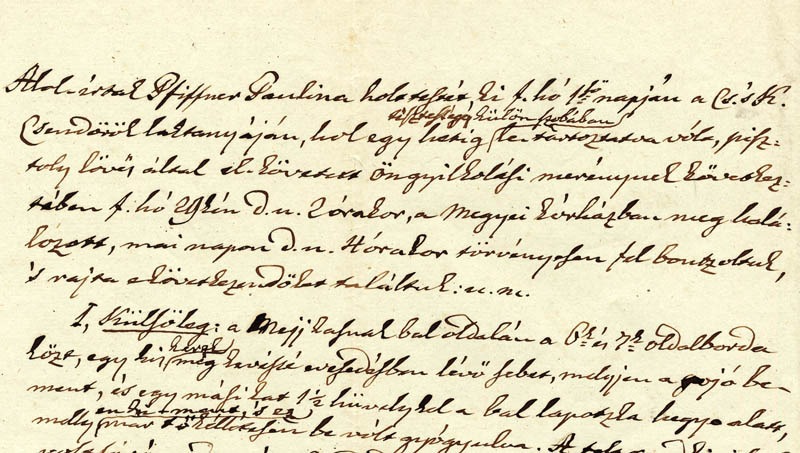 Alol-írtak Pfiffner Paulina holttestét ki f. hó 1ső napján a Cs. 's K.
tisztességű külön szobában
Csendőrök laktanyáján, hol egy hétig le tartóztatva vólt, pisz-
toly lövés által el-követett öngyilkolási merénynek következ-
tében f. hó 29kén d. u. 2 órakor, a Megyei kórházban meg halá-
lozott, mai napon d. u. 4 órakor törvényesen fel bontzoltuk,
's rajta a következendőket találtuk: u. m.
I, Külsőleg: a Mejj kasnak bal oldalán a 6k és 7k oldalborda
kerek
közt, egy kis még kevéssé evesedésben lévő sebet, mellyjen a gojó be-
ment, és egy másikat 1½ hüvelykel a bal lapotzka hegye alatt,
ki-ment, 's ez
melly már tökélletesen be vólt gyógyulva. A